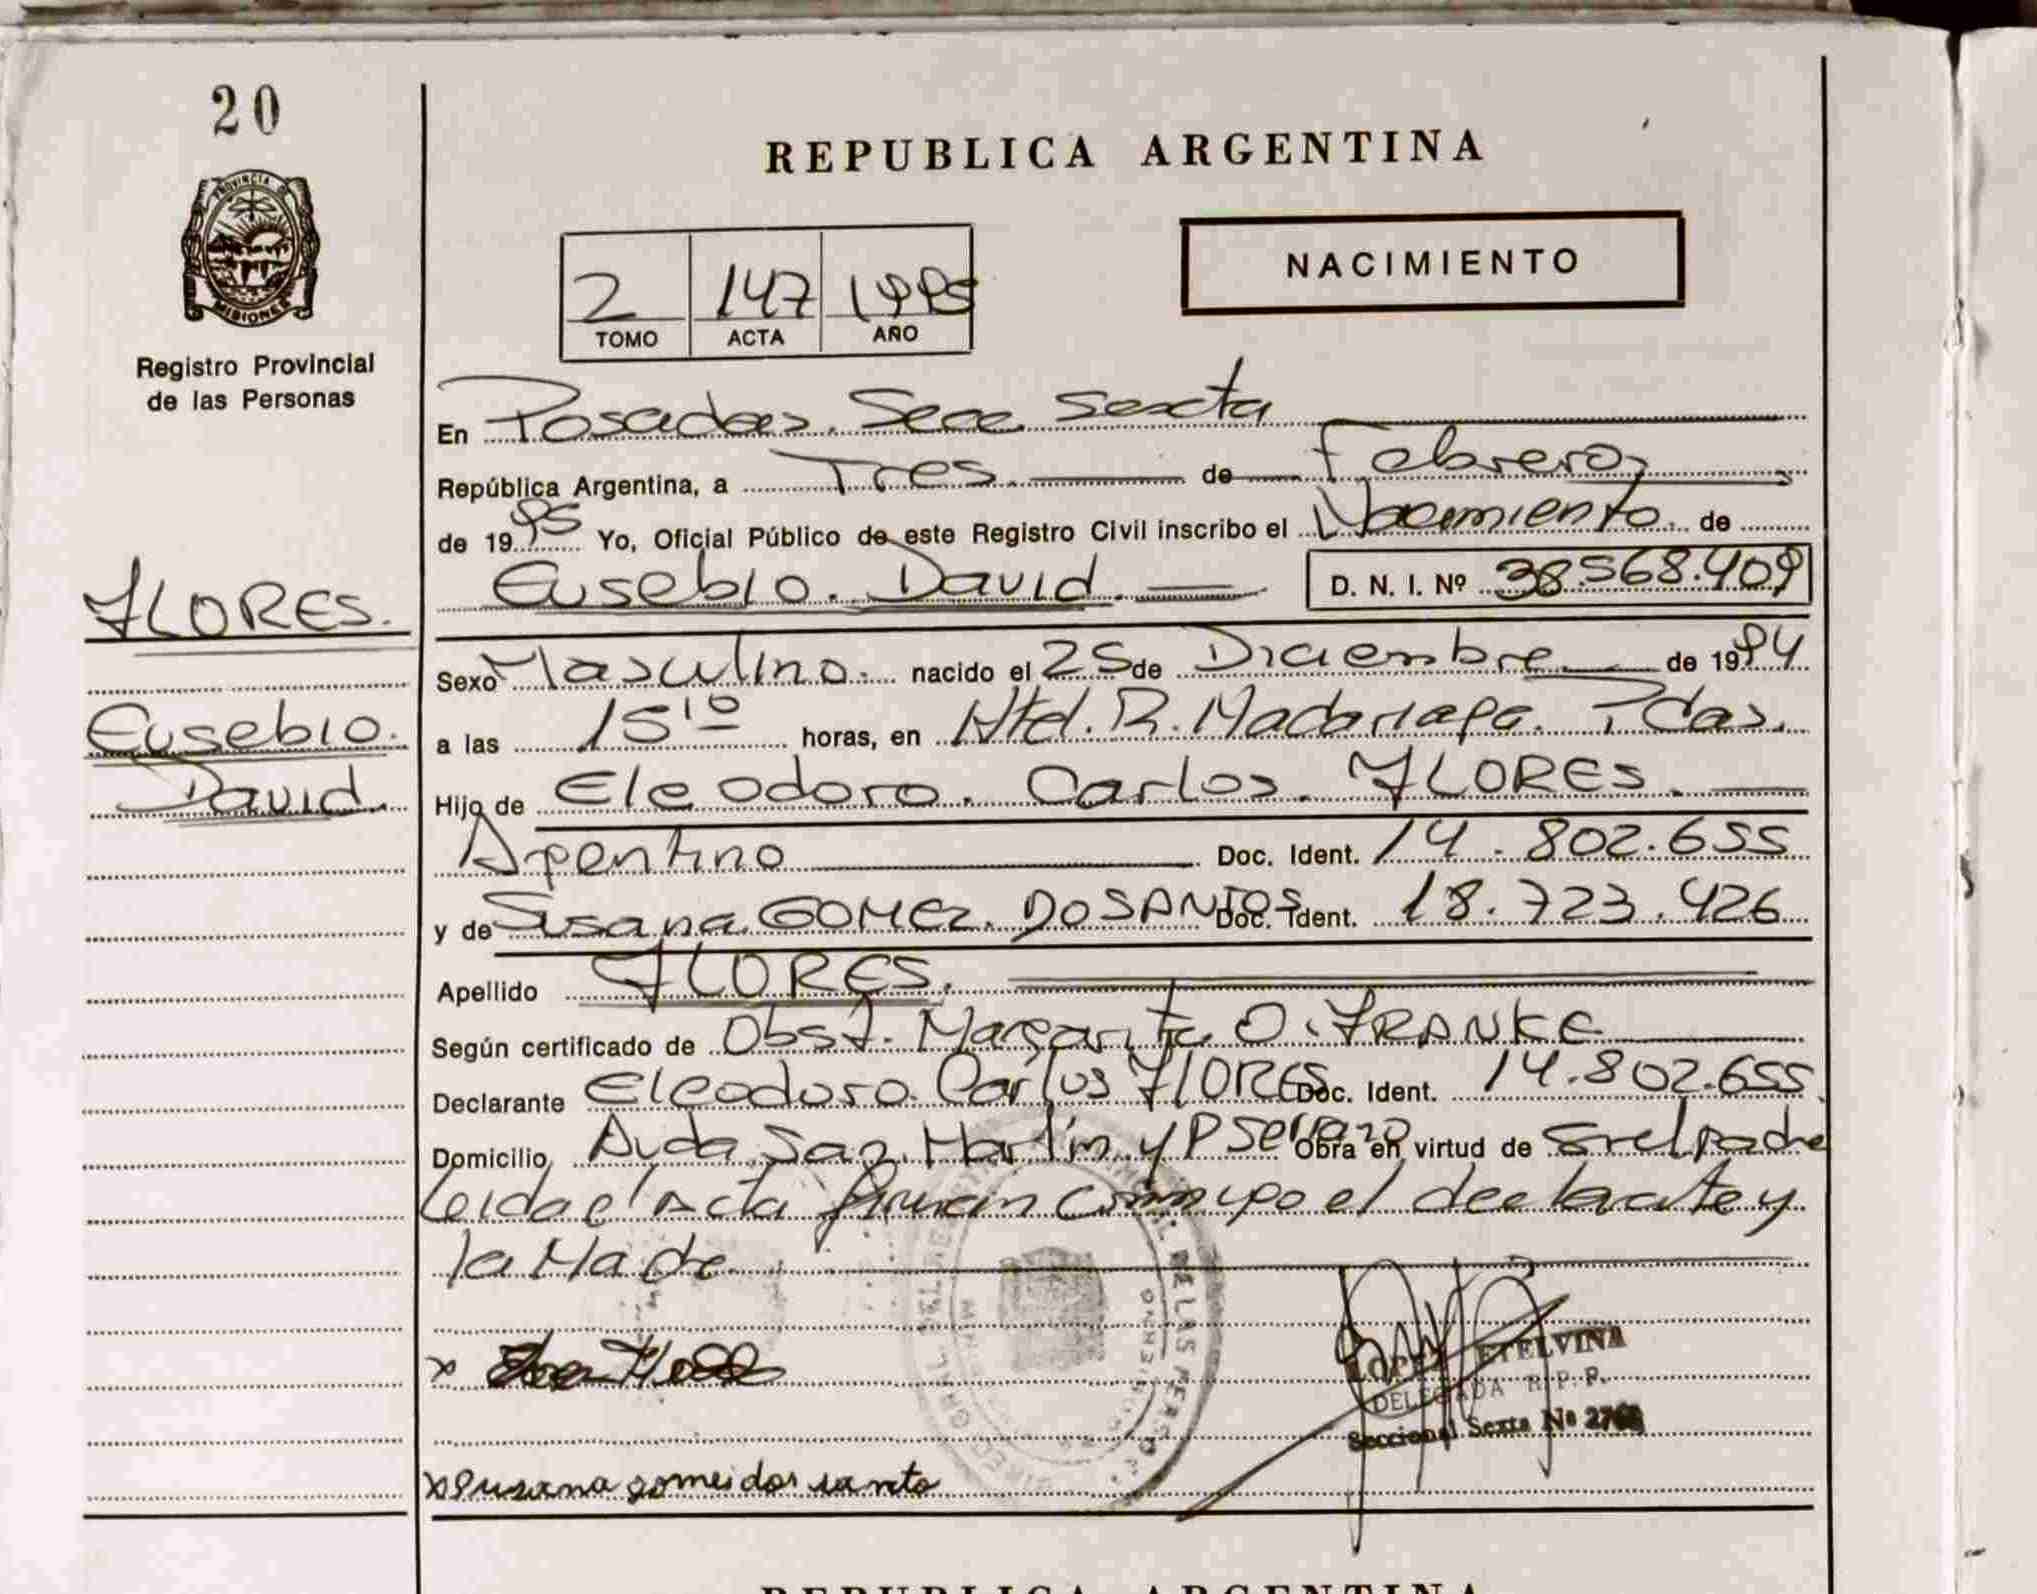 20
PROVINCIA DE
MISIONES
Registro Provincial
de las Personas
REPUBLICA ARGENTINA
2 147 1995
TOMO ACTA AÑO
NACIMIENTO
En Posadas. Secc. Sexta
República Argentina, a Tres de Febrero,
de 1995 Yo, Oficial Público de este Registro Civil inscribo el Nacimiento de
Eusebio. David. D. N. I. Nº 38.568.409
FLORES.
Eusebio.
David.
Sexo Masculino. nacido el 25 de Diciembre de 1994
a las 15 10 horas, en Htal. R. Madariaga. Pdas.
Hijo de Eleodoro. Carlos. FLORES.
Argentino Doc. Ident. 14.802.655
y de Susana GOMEZ. DOSANTOS Doc. Ident. 18.723.426
Apellido FLORES.
Según certificado de Obst. Margarita O. FRANKE
Declarante Eleodoro. Carlos FLORES Doc. Ident. 14.802.655
Domicilio Avda. San Martín y P Serrano Obra en virtud de Ser el padre
Leida el Acta firman conmigo el declarante y
la Madre
x
LOPEZ ETELVINA
DELEGADA R. P. P.
Seccional Sexta Nº
x Susana gomes dos santo
REPUBLICA ARGENTINA